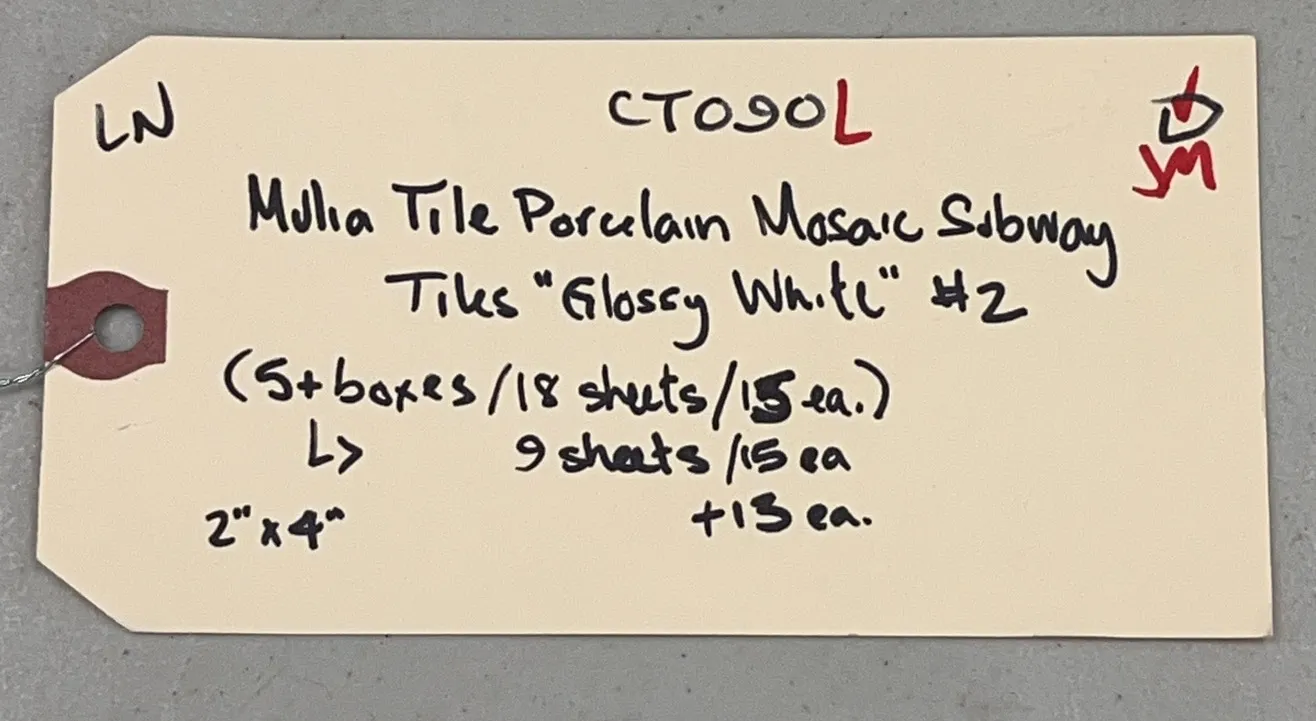 LN CT090L D
JM
Mulia Tile Porcelain Mosaic Subway
Tiles "Glossy White" #2
(5+ boxes/18 sheets/15 ea.)
↳ 9 sheets/15 ea
2" x 4" +13 ea.